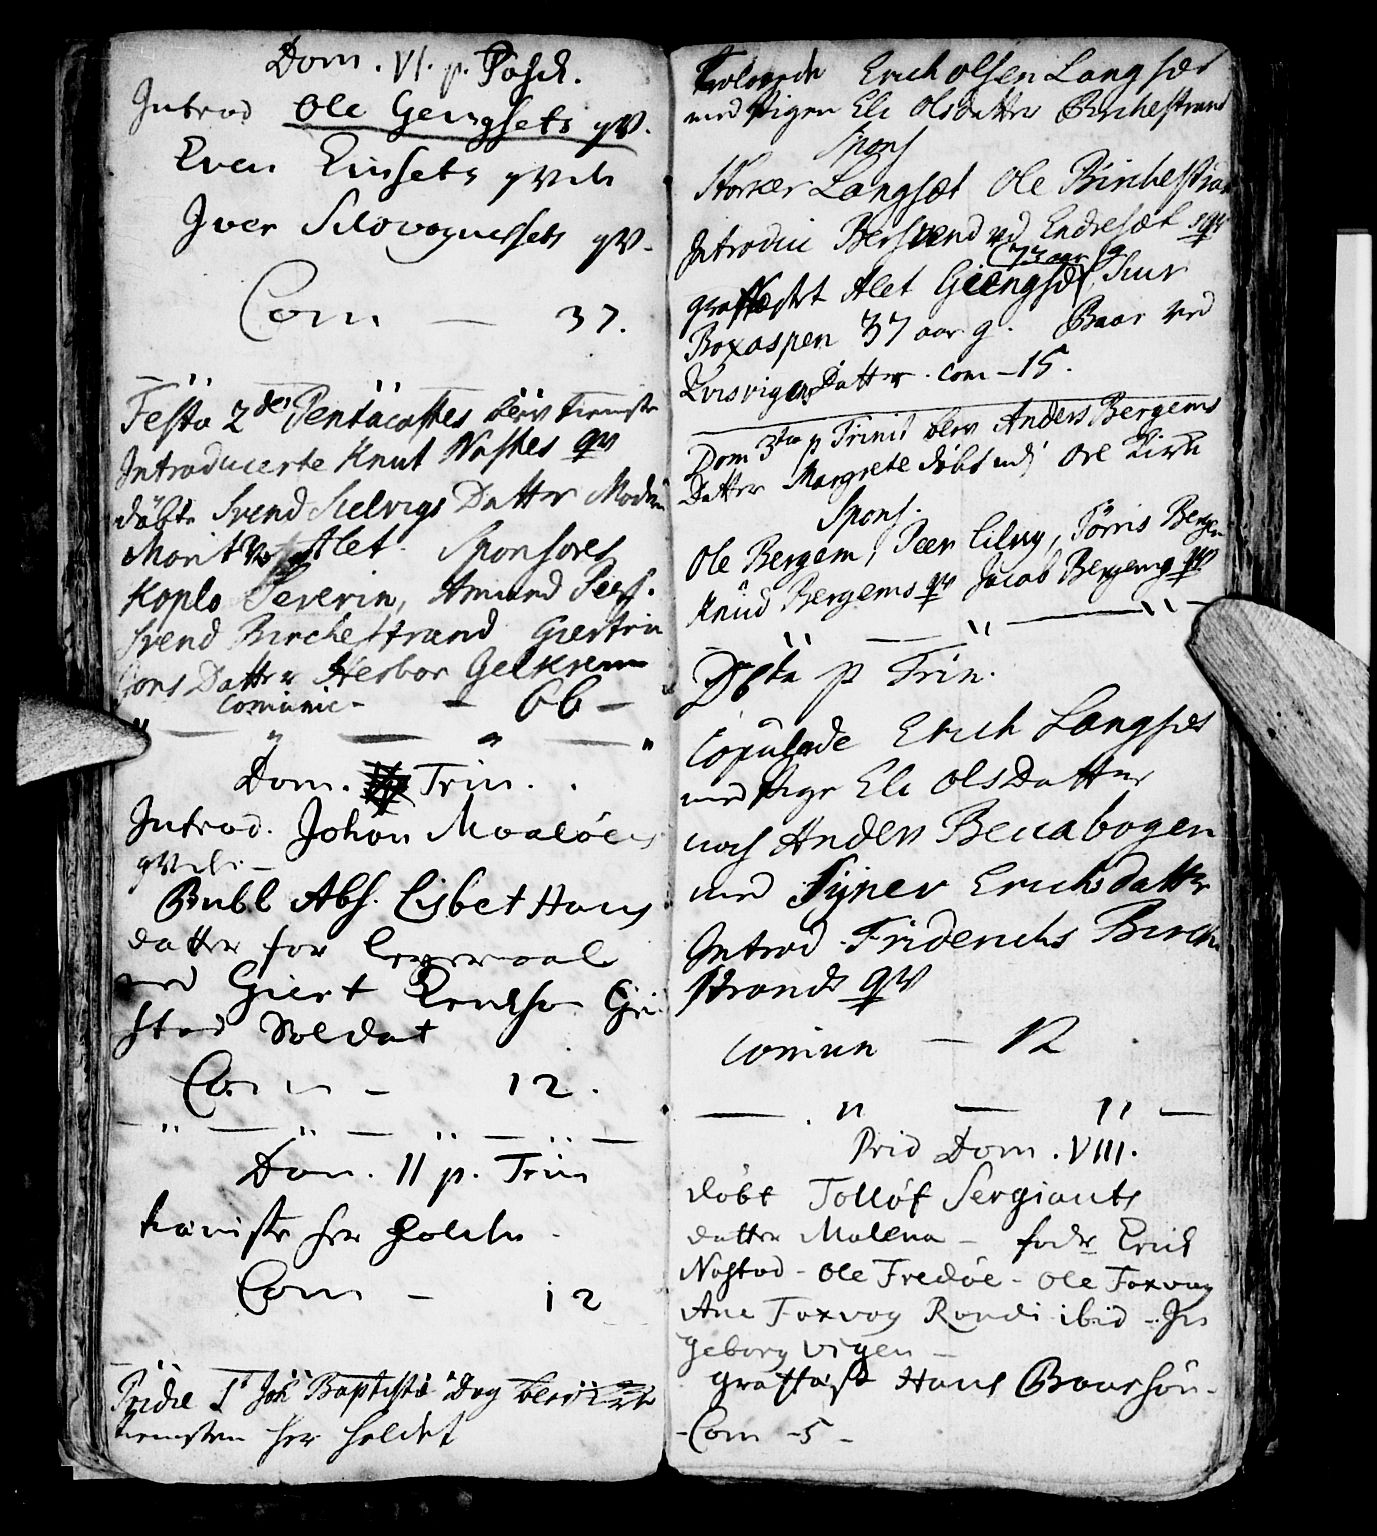 Dom. VI. p. Pasch.
Introd Ole Gengsets qv.
Even Einsets qvde
Iver Silovognessets qv.
Com — 37.
Festo 2de Pentacostes blev tieniste
Introducerte Knut Nastes qv
døbte Svend Sielvigs Datter
Morit Alet. Sponsores
Koplo Severin, Amund Peers.
Svend Birchestrand Giertru
Jons Datter Herbor Gelskrem
Comunic — 66 —
Dom. Trin.
Introd. Johan Maaløes
qvde —
Publ Abs. Lisbet Hans
datter for Leyermaal
med Giert Knudsø
Soldat
Com — 12.
Dom. II p. Trin
tieniste her holden
Com — 12
Pridie St Joh Baptistæ Dag blev
tiensten her holdet
Trolovede Erich Olsen Langset
med Pigen Eli Olsdatter Birchestrand
Spons
Langsæt Ole Birchestrand
Introduc ved Endresæt qv
73 aar g
grafæstet Alet Giengset
Roxaspen 37 aar g. Baar ved
Kvisvigen Datter. Com — 15.
Dom 3tia p Trinit blev Anders Bergems
Datter Margrete døbt udi Ore Kirke
Spons.
Ole Bergem, Peer Lilvy, Tørris Bergem
Knud Bergems qv Jacob Bergems qv
D 6ta p Trin.
Copulede Erich Langset
med Pige Eli Ols Datter
noch Anders Benabogen
med Signer Erichsdatter
Introd. Friderichs Birche
strands qv
Comun — 12
Prid Dom. VIII.
døbt Tolløf Sergiants
datter Malena — fadr Erik
Nastad — Ole Fredøe — Ole Foxvog
Ane Foxvog Randi ibid — In
geborg Vigen —
grafæst Hans Baarsøn —
Com — 5 —